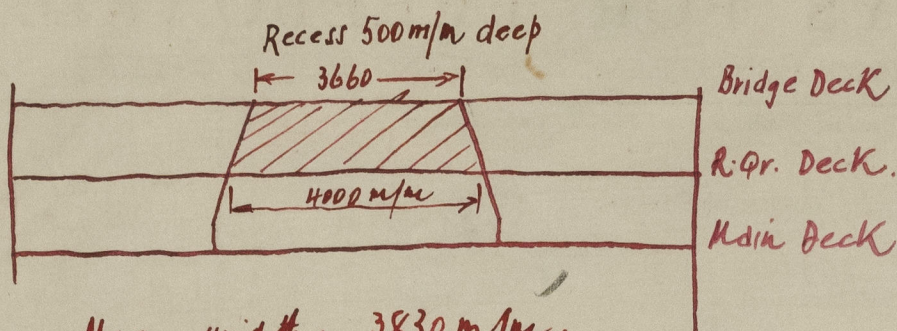 Recess 500 m/m deep
3660
Bridge Deck
R.Qr. Deck.
4000 m/m
Main Deck
width 3830 m/m